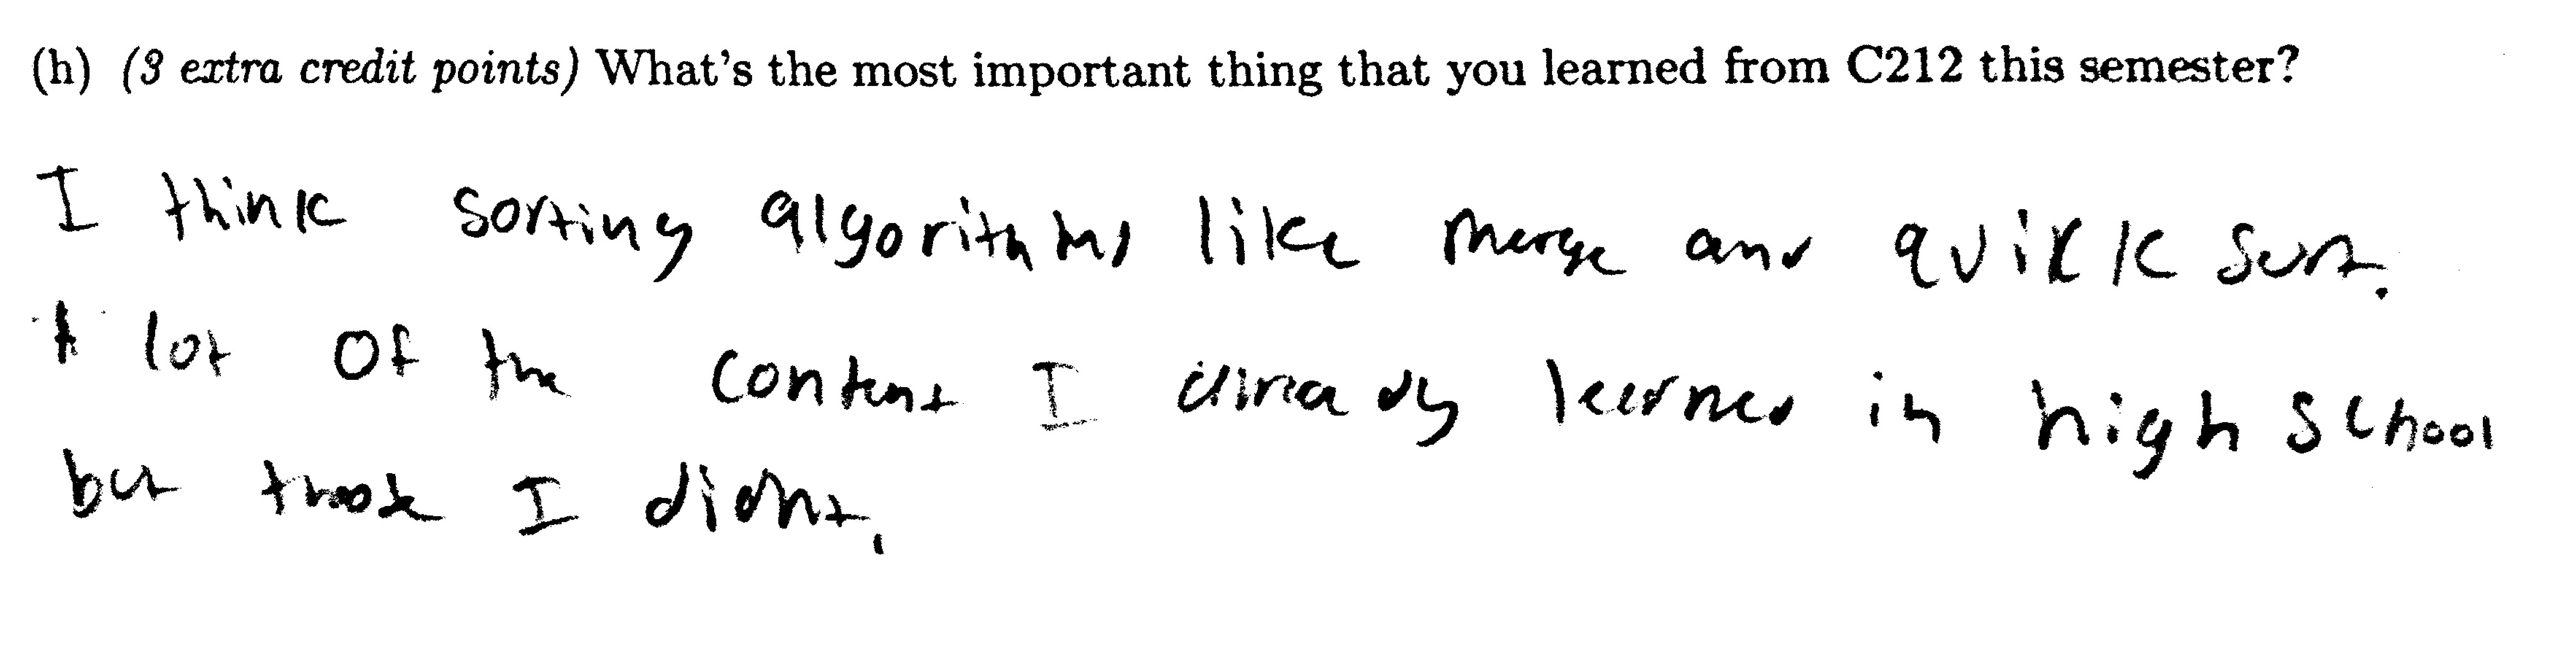 (h) (3 extra credit points) What's the most important thing that you learned from C212 this semester?
I think sorting algorithms like merge and quikk sort.
A lot of the content I already learned in high school
but those I didnt.